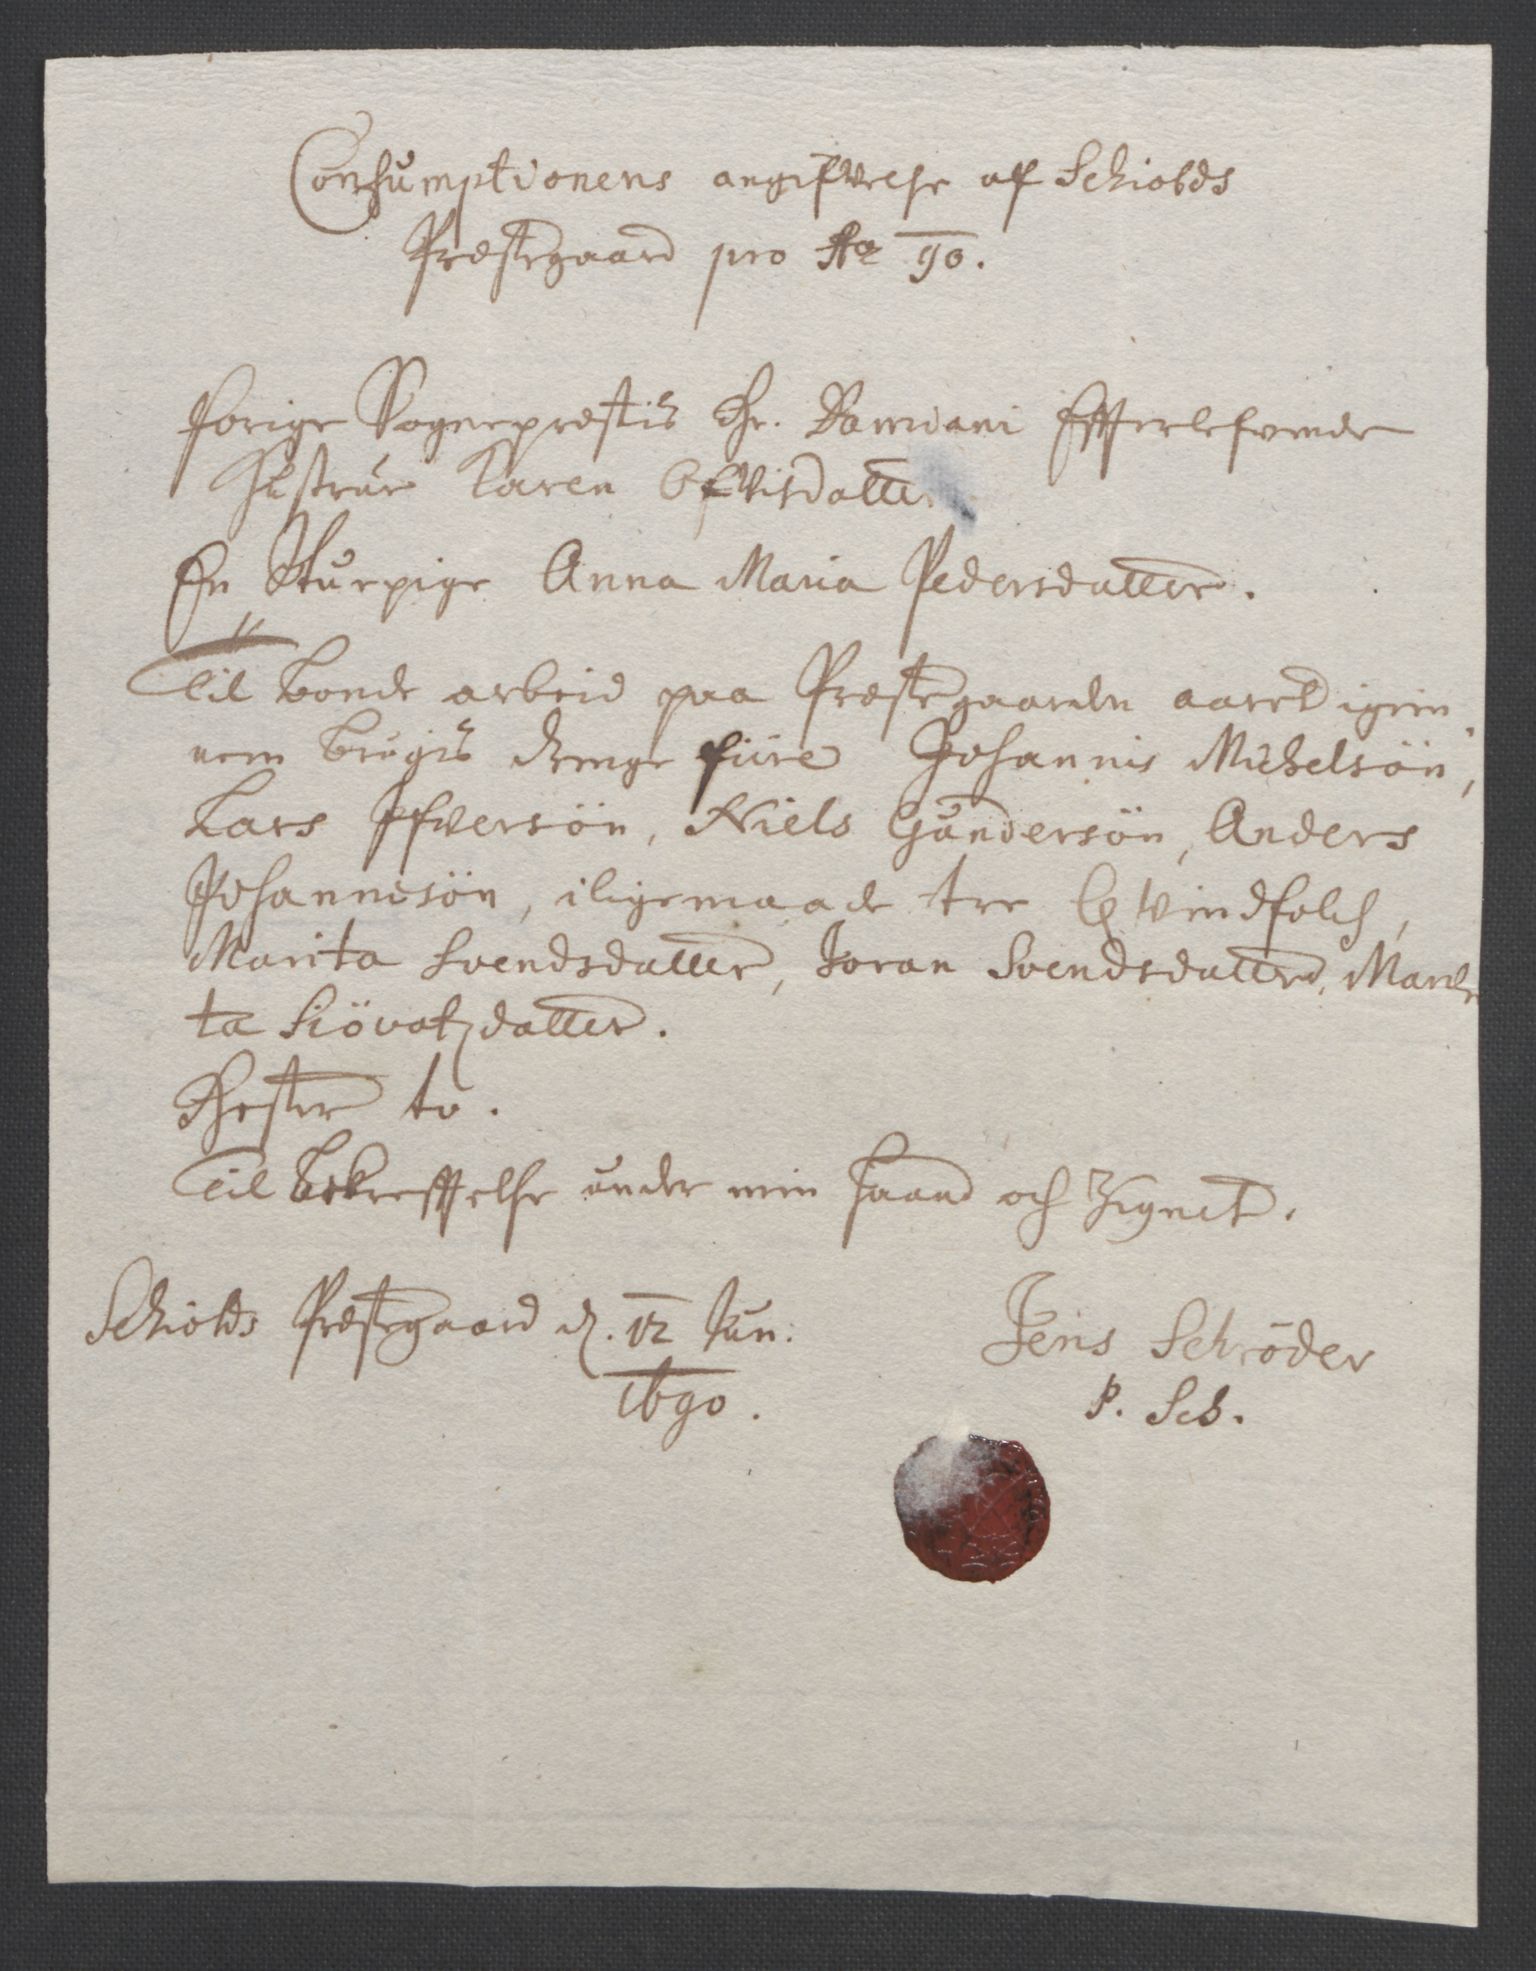 Consumptionens angifvelse af Schiolds
Præstegaard pro Ao 90.
forige Sognepræstis Hr. Damiani Effterlefvende
Hustrue Karen Ofvisdatter
En Stuepige Anna Maria Pedersdatter.
Til bonde arbeid paa Præstegaarden aaret igien
nem brugis drenge fiire Johannis Michelsön,
Lars Ifversön, Niels Gundersön, Anders
Johannisön, iligemaade tre Qvindfolch,
Marita Svendsdatter, Joran Svendsdatter, Mari
ta Siövatzdatter.
Hester to.
Til bekrefftelse under min haand och Zignet.
Schiolds Præstegaard d. 12 Jun:
1690.
Jens Schröder
P. Sch.